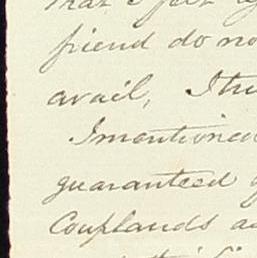 that I felt
friend do no
avail, I tru
I mentioned
guaranteed
Couplands a